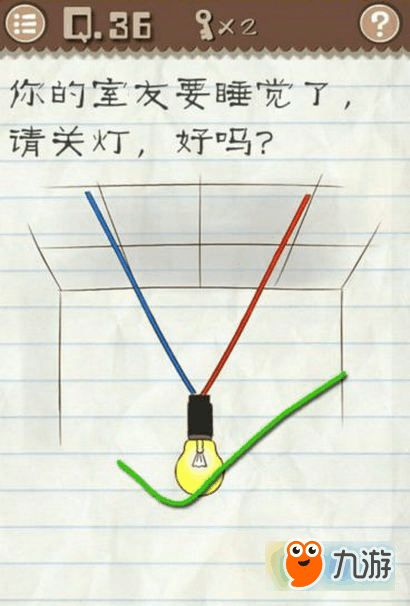 Q.36
×2
?
你的室友要睡觉了，
请关灯，好吗？
九游